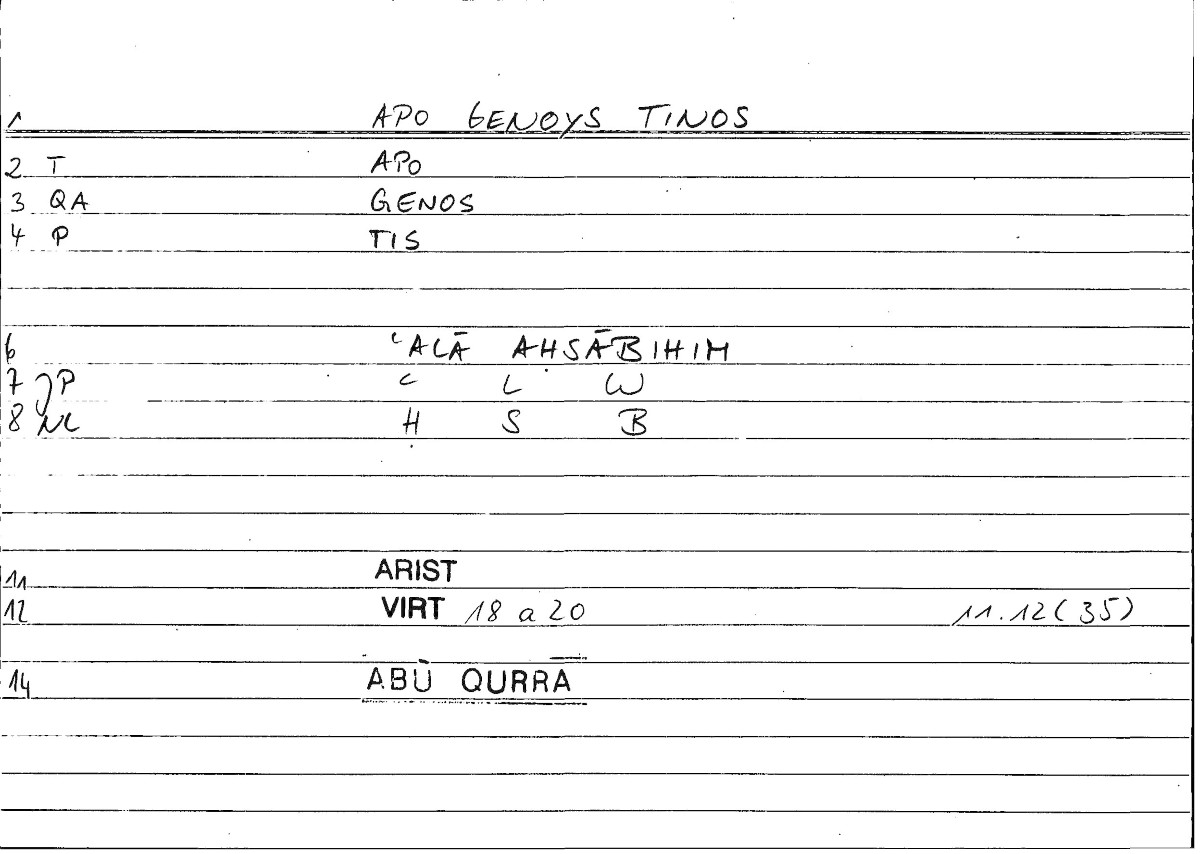 1 APO GENOYS TINOS
2 T APO
3 QA GENOS
4 P TIS
6 ʿALĀ AHSĀBIHIM
7 P ʿ L W
8 NC H S B
11 ARIST
12 VIRT 18 a 20 11.12(35)
14 ABŪ QURRĀ